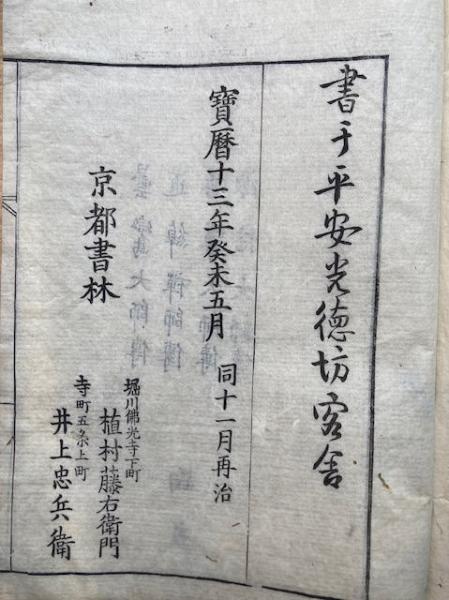 書于平安光德坊客舎
寶曆十三年癸未五月 同十一月再治
京都書林
堀川佛光寺下町
植村藤右衛門
寺町五条上町
井上忠兵衛